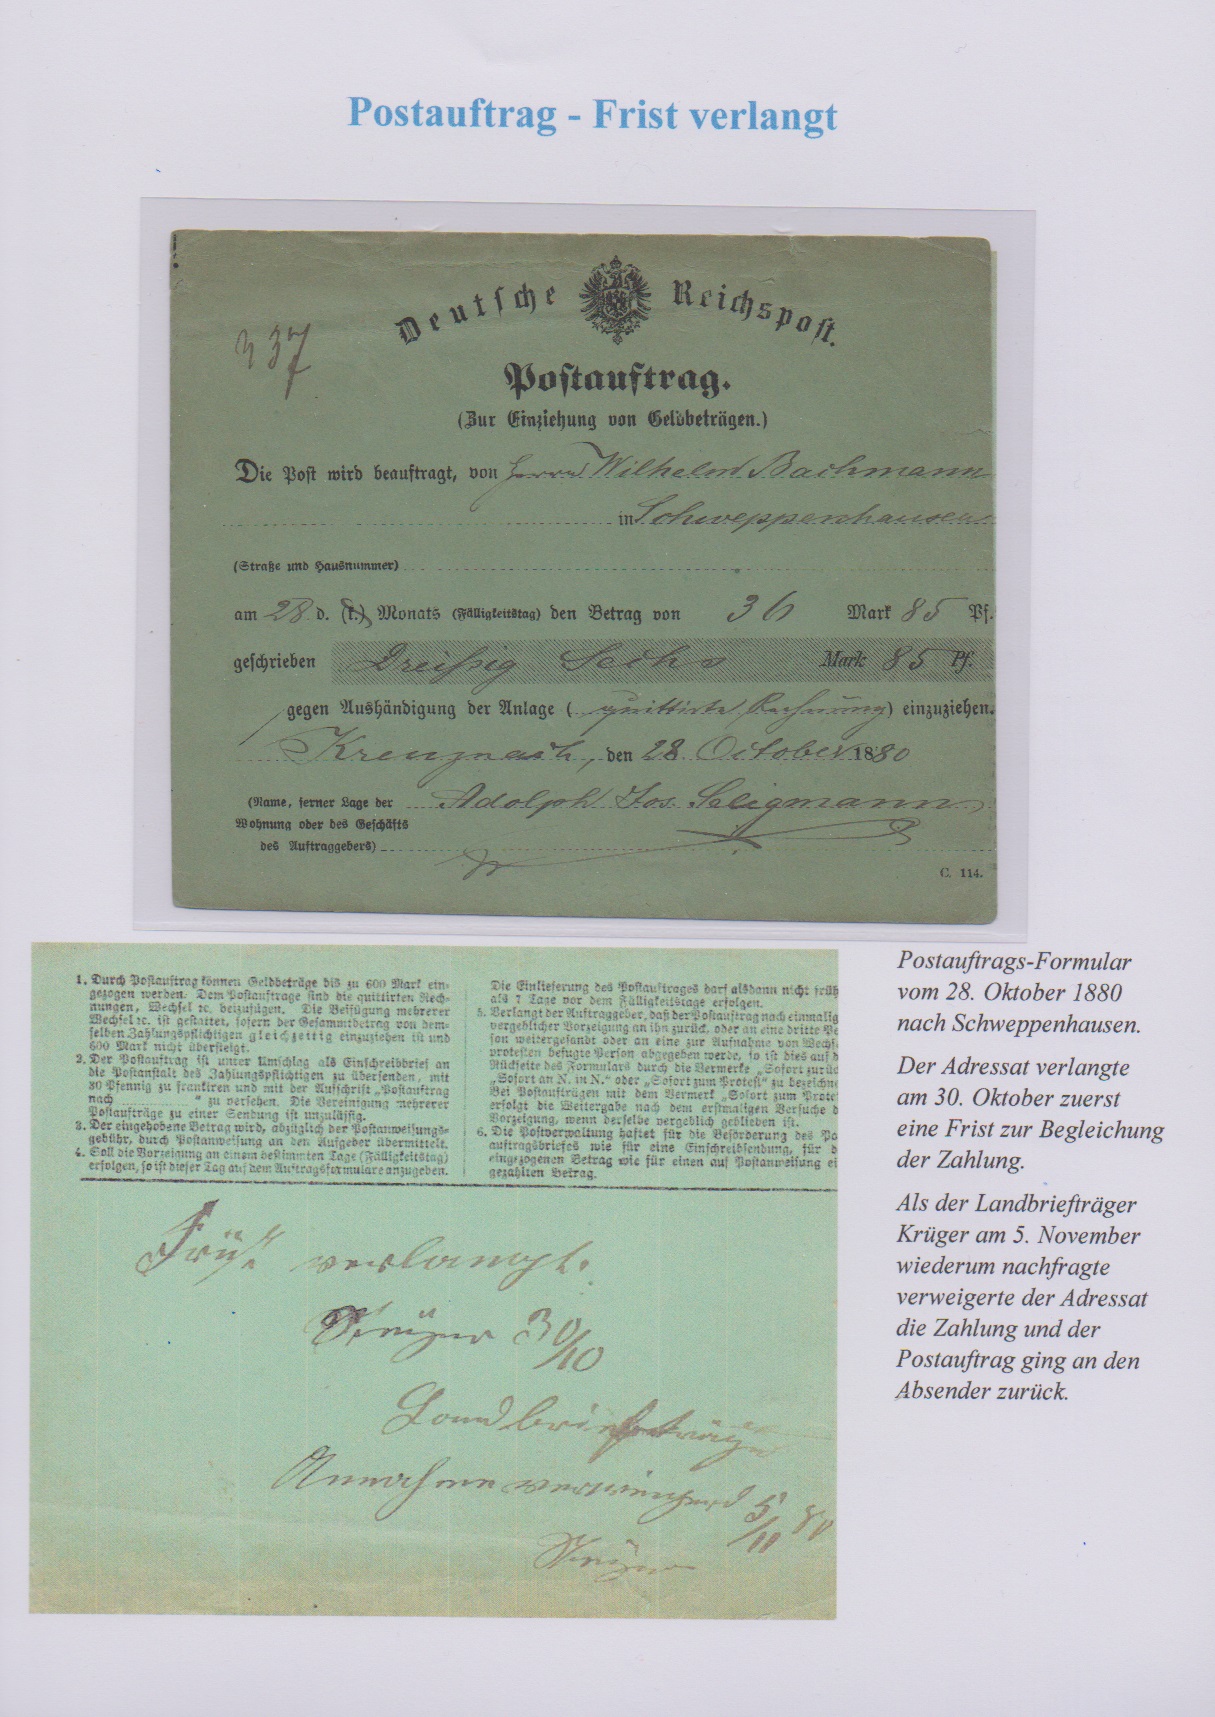 Postauftrag - Frist verlangt
337
Deutsche Reichspost.
Postauftrag.
(Zur Einziehung von Geldbeträgen.)
Die Post wird beauftragt, von Herrn Wilhelm Bachmann
in Schweppenhausen
(Straße und Hausnummer)
am 28 d. (k.) Monats (Fälligkeitstag) den Betrag von 36 Mark 85 Pf.
geschrieben Dreißig Sechs Mark 85 Pf.
gegen Aushändigung der Anlage (quittirte Rechnung) einzuziehen.
Kreuznach, den 28 October 1880
(Name, ferner Lage der Adolph Jos. Seligmann
Wohnung oder des Geschäfts
des Auftraggebers)
C. 114.
1. Durch Postauftrag können Geldbeträge bis zu 600 Mark ein-
gezogen werden. Dem Postauftrage sind die quittirten Rech-
nungen, Wechsel ꝛc. beizufügen. Die Beifügung mehrerer
Wechsel ꝛc. ist gestattet, sofern der Gesammtbetrag von dem-
selben Zahlungspflichtigen gleichzeitig einzuziehen ist und
600 Mark nicht übersteigt.
2. Der Postauftrag ist unter Umschlag als Einschreibbrief an
die Postanstalt des Zahlungspflichtigen zu übersenden, mit
30 Pfennig zu frankiren und mit der Aufschrift „Postauftrag
nach ............ “ zu versehen. Die Vereinigung mehrerer
Postaufträge zu einer Sendung ist unzulässig.
3. Der eingehobene Betrag wird, abzüglich der Postanweisungs-
gebühr, durch Postanweisung an den Aufgeber übermittelt.
4. Soll die Vorzeigung an einem bestimmten Tage (Fälligkeitstag)
erfolgen, so ist dieser Tag auf dem Auftragsformulare anzugeben.
Die Einlieferung des Postauftrages darf alsdann nicht früh
als 7 Tage vor dem Fälligkeitstage erfolgen.
5. Verlangt der Auftraggeber, daß der Postauftrag nach einmalig
vergeblicher Vorzeigung an ihn zurück, oder an eine dritte Pe
son weitergesandt oder an eine zur Aufnahme von Wechs
protesten befugte Person abgegeben werde, so ist dies auf d
Rückseite des Formulars durch die Vermerke „Sofort zurüc
„Sofort an N. in N.“ oder „Sofort zum Protest“ zu bezeichne
Bei Postaufträgen mit dem Vermerk „Sofort zum Prote
erfolgt die Weitergabe nach dem erstmaligen Versuche d
Vorzeigung, wenn derselbe vergeblich geblieben ist.
6. Die Postverwaltung haftet für die Beförderung des Po
auftragsbriefes wie für eine Einschreibsendung, für d
eingezogenen Betrag wie für einen auf Postanweisung ei
gezahlten Betrag.
Frist verlangt.
Krüger 30/10
Landbriefträger
Annahme verweigerd 5/11 80
Krüger
Postauftrags-Formular
vom 28. Oktober 1880
nach Schweppenhausen.
Der Adressat verlangte
am 30. Oktober zuerst
eine Frist zur Begleichung
der Zahlung.
Als der Landbriefträger
Krüger am 5. November
wiederum nachfragte
verweigerte der Adressat
die Zahlung und der
Postauftrag ging an den
Absender zurück.